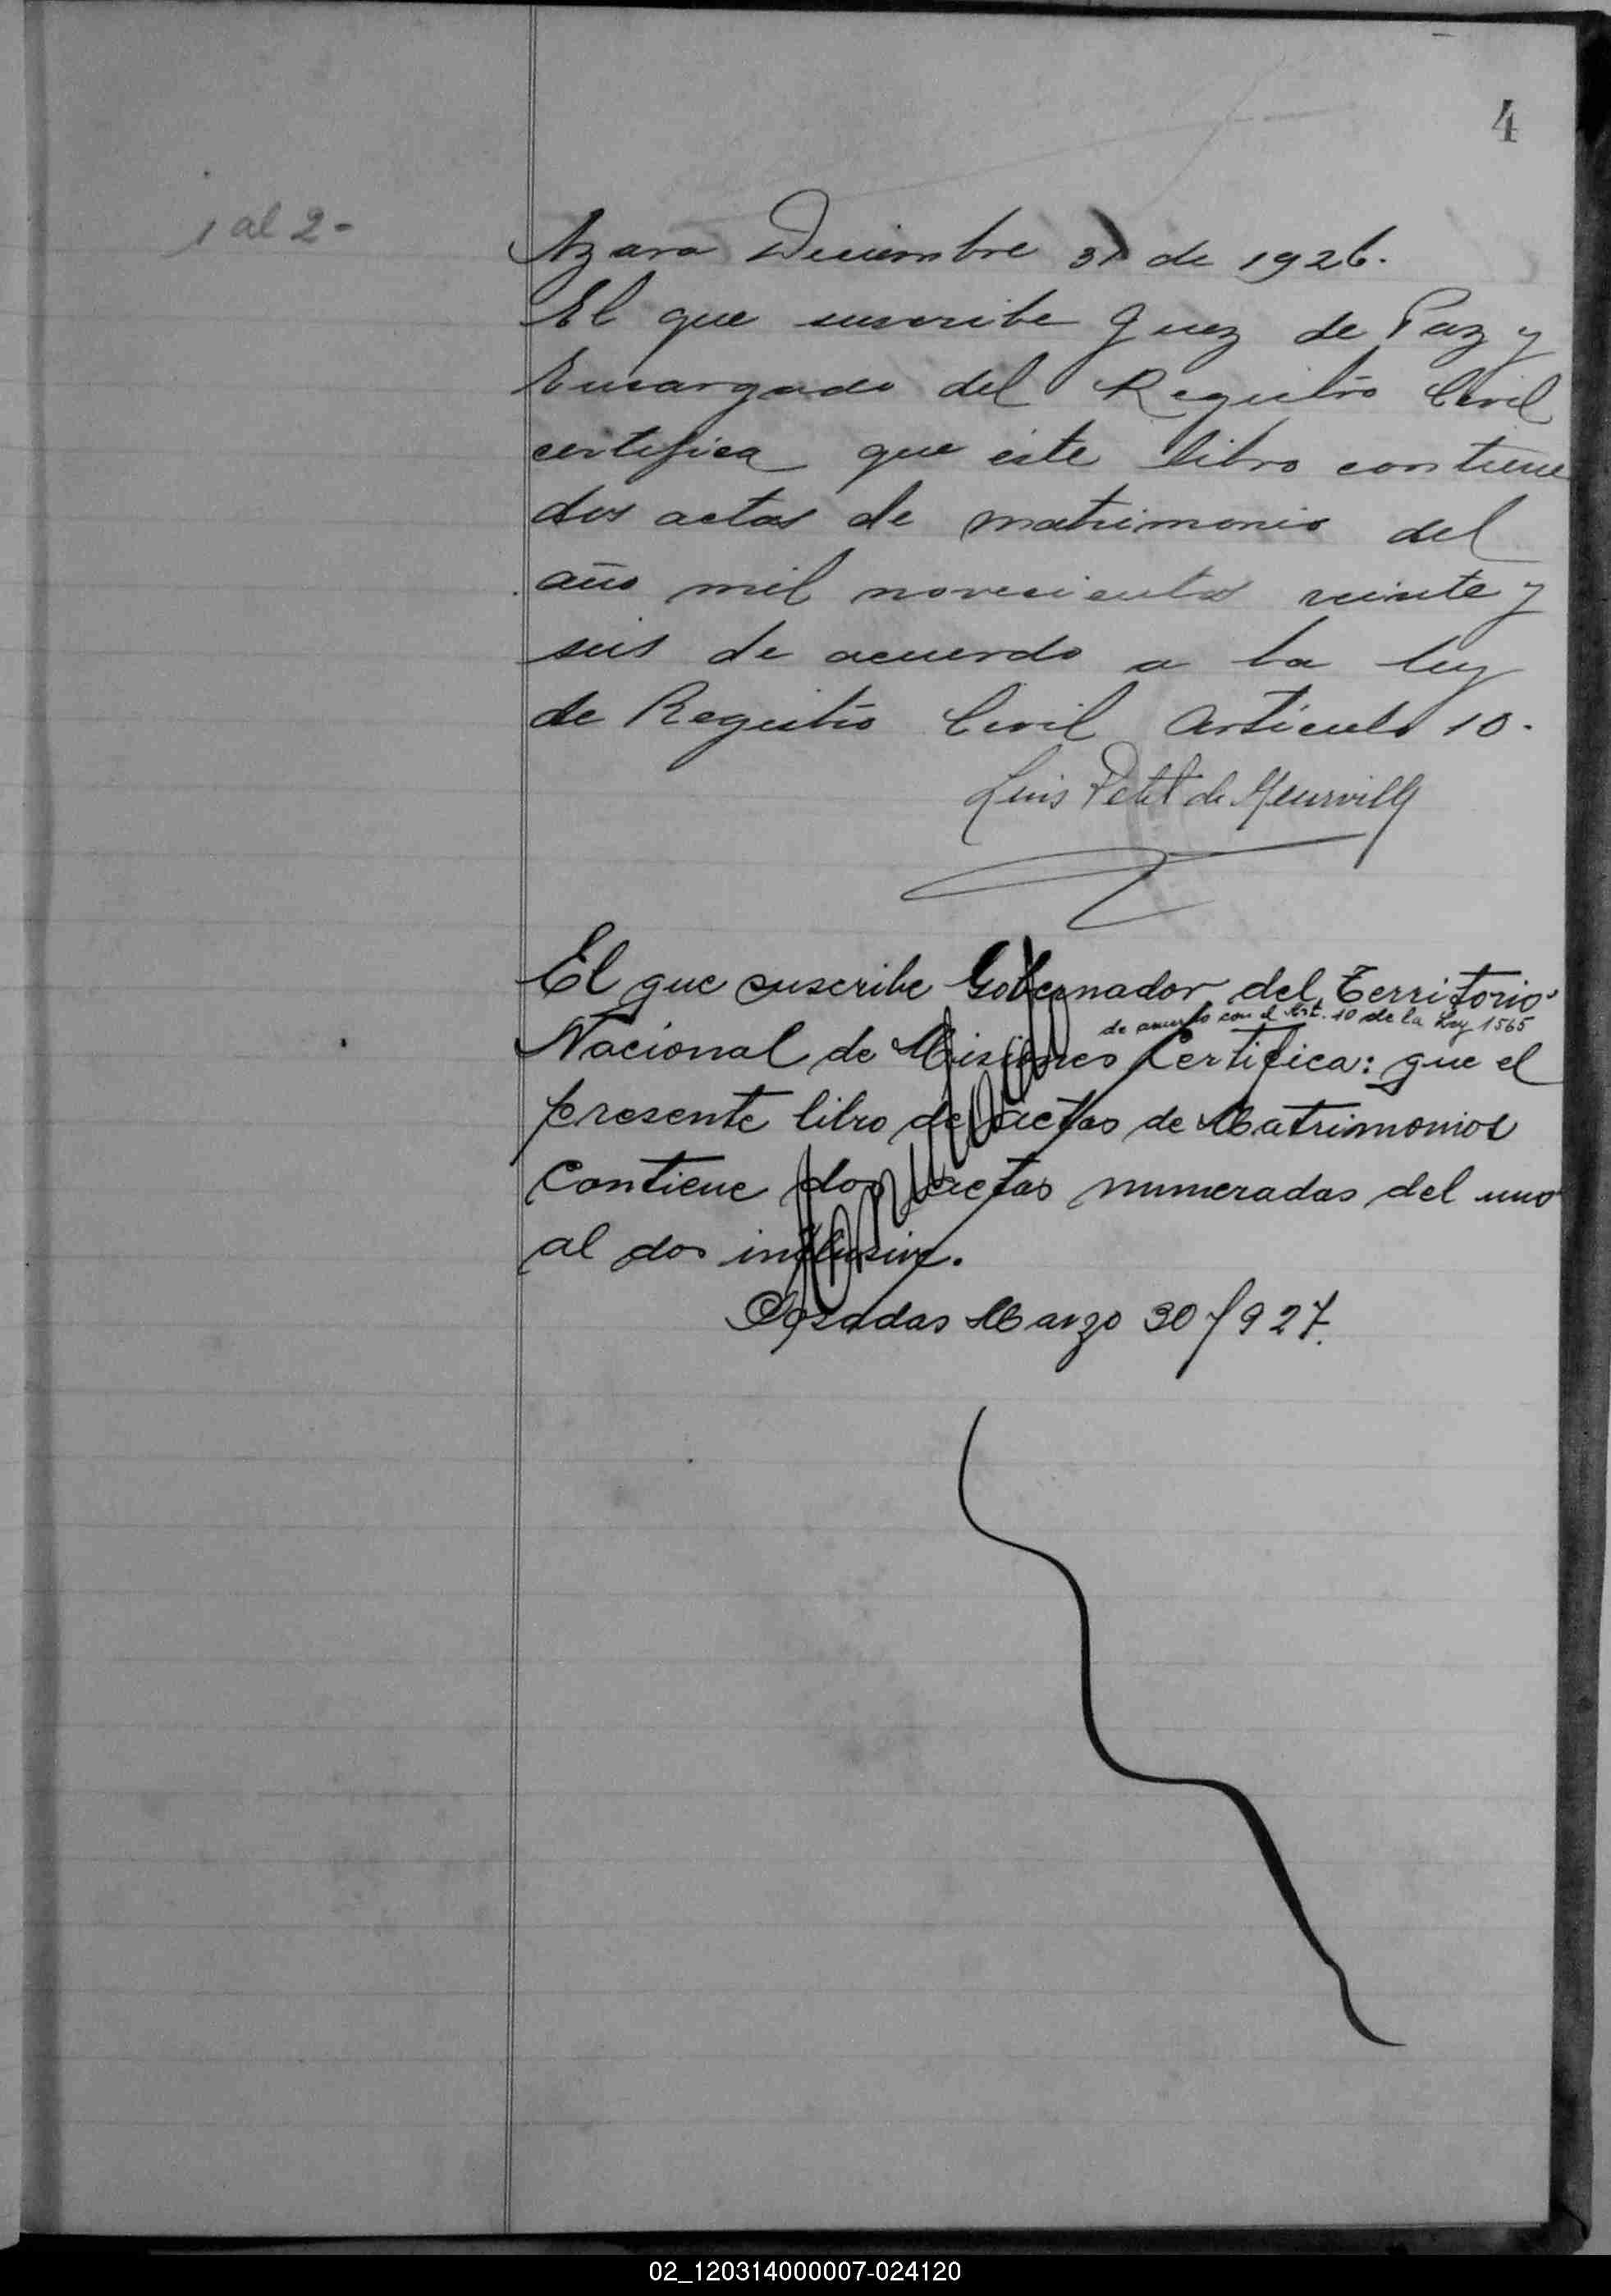 4
1 al 2-
Azara Diciembre 31 de 1926.
El que suscribe Juez de Paz y
Encargado del Registro Civil
certifica que este libro contiene
dos actas de matrimonio del
año mil novecientos veinte y
seis de acuerdo a la ley
de Registro Civil Articulo 10.
Luis Petit de Meurville
El que suscribe Gobernador del Territorio
de acuerdo con el Art. 10 de la Ley 1565
Nacional de Misiones Certifica: que el
presente libro de actas de Matrimonios
Contiene dos actas numeradas del uno
al dos inclusive.
Posadas Marzo 30/927.
02_120314000007-024120